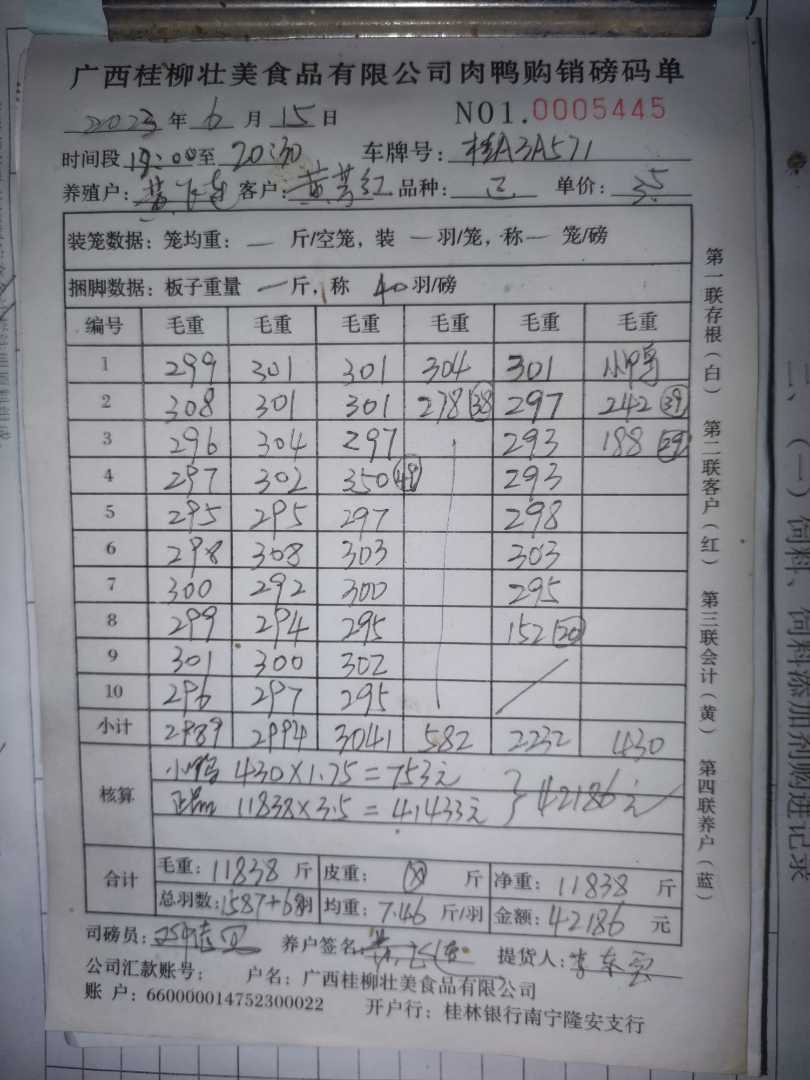 广西桂柳壮美食品有限公司肉鸭购销磅码单
2023年6月15日 NO1.0005445
时间段19:00至20:30 车牌号:桂A3A571
养殖户: 客户:黄 红 品种:正 单价:3.5
装笼数据:笼均重:— 斤/空笼,装 — 羽/笼,称 — 笼/磅
捆脚数据:板子重量 — 斤,称 40 羽/磅
编号 毛重 毛重 毛重 毛重 毛重 毛重
1 299 301 301 304 301 小鸭
2 308 301 301 278 38 297 242 39
3 296 304 297 293 188 29
4 297 302 350 49 293
5 295 295 297 298
6 298 308 303 303
7 300 292 300 295
8 299 294 295 152 20
9 301 300 302
10 296 297 295
小计 2989 2994 3041 582 2232 430
核算 小鸭 430×1.75=753元
正品 11838×3.5=41433元 } 42186元
合计 毛重:11838斤 皮重: 斤 净重:11838斤
总羽数:1587+68羽 均重:7.46斤/羽 金额:42186元
司磅员: 养户签名: 提货人:李
公司汇款账号: 户名:广西桂柳壮美食品有限公司
账 户:660000014752300022 开户行:桂林银行南宁隆安支行
第一联存根(白) 第二联客户(红) 第三联会计(黄) 第四联养户(蓝)
二、(一)饲料、饲料添加剂购进记录